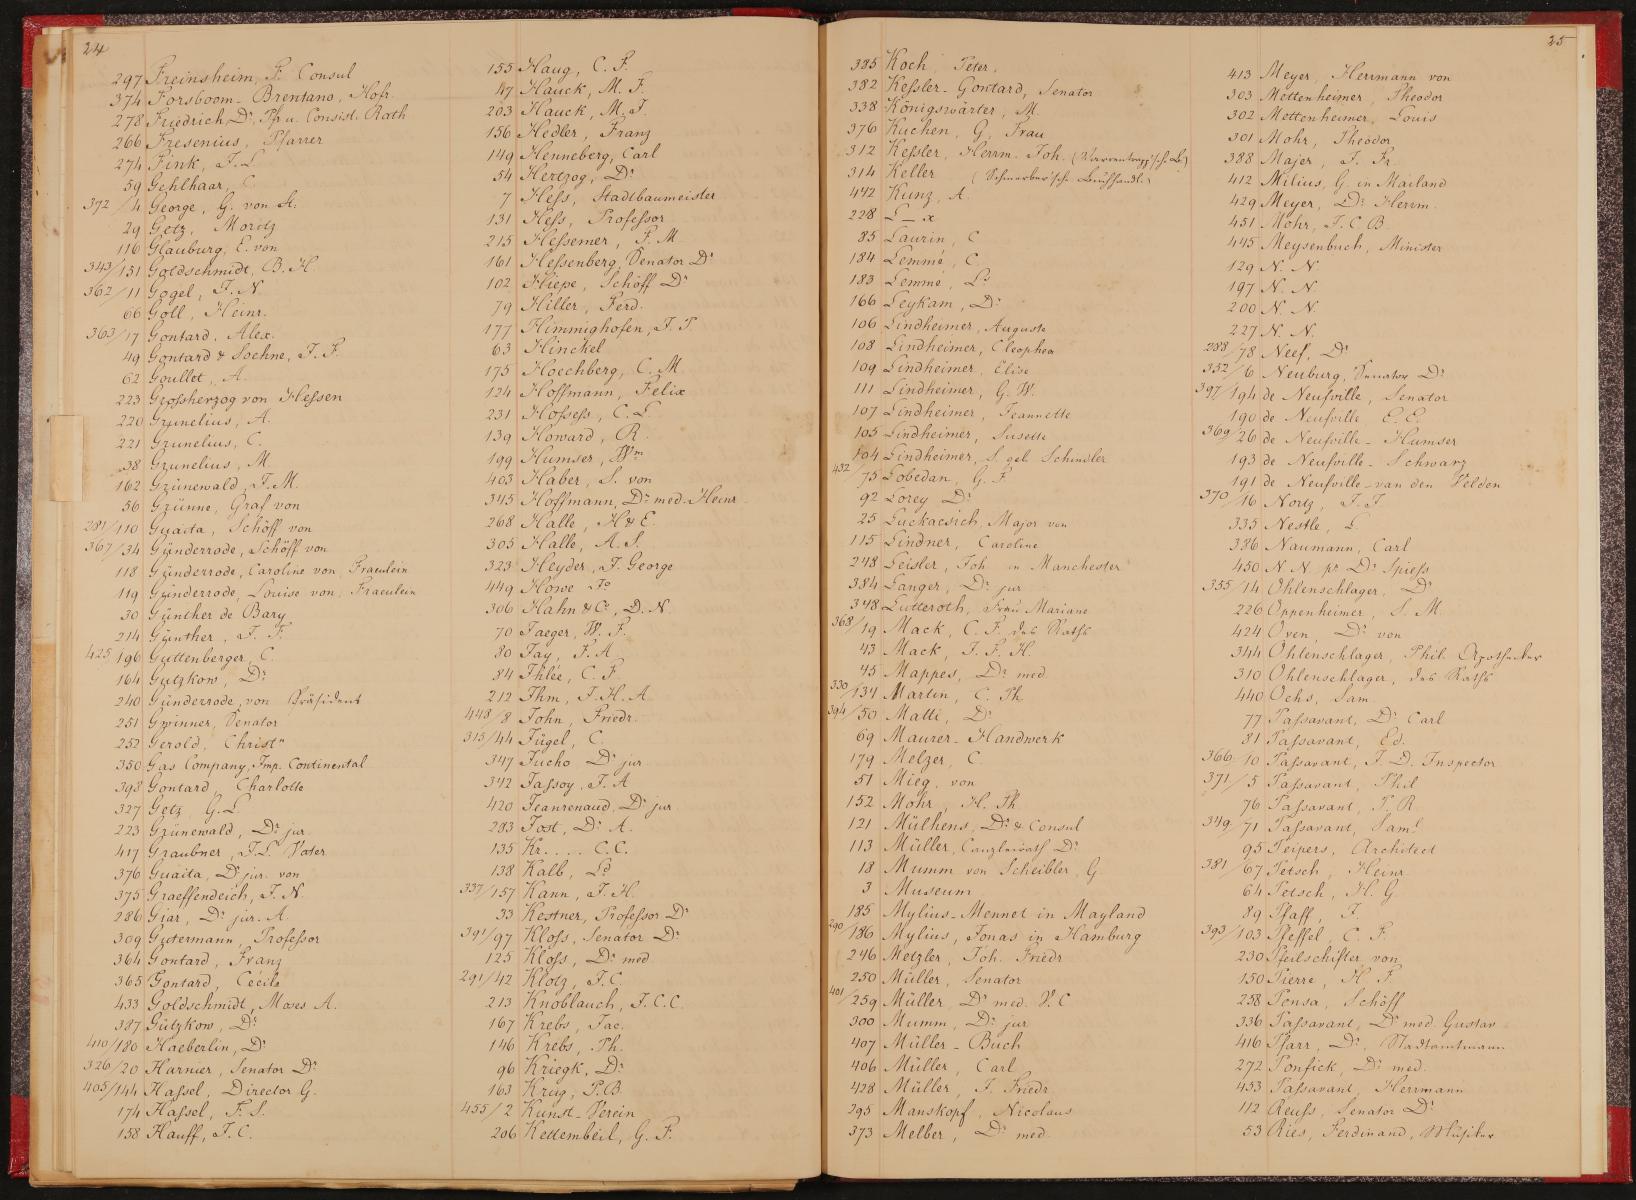 24
297 Freinsheim, F. Consul
374 Forsboom-Brentano, Hofr.
278 Friedrich, Dr. Pfr. u. Consist. Rath
266 Fresenius, Pfarrer
274 Fink, J. L.
59 Gehlhaar, C.
372/4 George, G. von St.
29 Getz, Moritz
116 Glauburg, E. von
343/151 Goldschmidt, B. H.
362/11 Gogel, J. N.
66 Goll, Heinr.
363/17 Gontard, Alex.
49 Gontard & Soehne, J. F.
62 Goullet, A.
223 Grossherzog von Hessen
220 Grunelius, A.
221 Grunelius, C.
38 Grunelius, M.
162 Grünewald, J. M.
56 Grünne, Graf von
281/110 Guaita, Schöff von
367/34 Günderrode, Schöff von
118 Günderrode, Caroline von, Fraeulein
119 Günderrode, Louise von, Fraeulein
30 Günther de Bary
214 Günther, J. F.
425/196 Guttenberger, C.
164 Gutzkow, Dr.
240 Günderrode, von Präsident
251 Gwinner, Senator
252 Gerold, Christn
350 Gas Company, Imp. Continental
398 Gontard, Charlotte
327 Getz, G. L.
223 Grünewald, Dr. jur.
417 Graubner, J. L. Vater
376 Guaita, Dr. jur. von
375 Graeffendeich, J. N.
286 Giar, Dr. jur. A.
309 Gutermann, Professor
364 Gontard, Franz
365 Gontard, Cécile
433 Goldschmidt, Moses A.
387 Gützkow, Dr.
410/180 Haeberlin, Dr.
326/20 Harnier, Senator Dr.
405/144 Hassel, Director G.
174 Hassel, F. S.
158 Hauff, J. C.
155 Haug, C. F.
47 Hauck, M. F.
203 Hauck, M. J.
156 Hedler, Franz
149 Henneberg, Carl
54 Hertzog, Dr.
7 Hess, Stadtbaumeister
131 Hess, Professor
215 Hessemer, F. M.
161 Hessenberg, Senator Dr.
102 Hiepe, Schöff Dr.
79 Hiller, Ferd.
177 Himmighofen, J. P.
63 Hinckel
175 Hoechberg, C. M.
124 Hoffmann, Felix
231 Hofsess, C. L.
139 Howard, R.
199 Humser, Wm
403 Haber, S. von
345 Hoffmann, Dr. med. Heinr.
268 Halle, H & E.
305 Halle, A. S.
323 Heyder, J. George
449 Howe Jo
306 Hahn & Co, D. N.
70 Jaeger, W. F.
80 Jay, F. A.
84 Ihlée, C. F.
212 Ihm, J. H. A.
448/8 John, Friedr.
315/44 Jügel, C.
347 Jucho Dr. jur.
342 Jassoy, J. A.
420 Jeanrenaud, Dr. jur.
283 Jost, Dr. A.
135 Kr. . . . C. C.
138 Kalb, Ld
337/157 Kann, J. H.
33 Kestner, Professor Dr.
391/97 Kloss, Senator Dr.
125 Kloss, Dr. med
291/42 Klotz, J. C.
213 Knoblauch, J. C. C.
167 Krebs, Jac.
146 Krebs, Ph.
96 Kriegk, Dr.
163 Krug, P. B.
455/2 Kunst-Verein
206 Kettembeil, G. F.
25
385 Koch, Peter,
382 Kessler-Gontard, Senator
338 Königswärter, M.
376 Kuchen, G. Frau
312 Kessler, Herrm. Joh. (Varrentrapp'sch. B.)
314 Keller (Schmerber'sche Buchhandl.)
442 Kunz, A.
228 L – x
85 Laurin, C
184 Lemmé, C.
183 Lemmé, Ls
166 Leykam, Dr.
106 Lindheimer, Auguste
108 Lindheimer, Cleophea
109 Lindheimer, Elise
111 Lindheimer, G. W.
107 Lindheimer, Jeannette
105 Lindheimer, Susette
104 Lindheimer, S. geb. Schindler
432/75 Lobedan, G. F.
92 Lorey Dr.
25 Luckacsich, Major von
115 Lindner, Caroline
248 Leisler, Joh in Manchester
384 Langer, Dr. jur
348 Lutteroth, Frau Mariane
368/19 Mack, C. F. des Raths
43 Mack, J. F. H.
45 Mappes, Dr. med.
330/134 Martin, C. Th.
394/50 Matti, Dr.
69 Maurer-Handwerk
179 Melzer, C.
51 Mieg, von
152 Mohr, H. Th.
121 Mülhens, Dr. & Consul
113 Müller, Canzleirath Dr.
18 Mumm von Scheibler, G.
3 Museum
185 Mylius-Mennet in Mayland
290/186 Mylius, Jonas in Hamburg
246 Metzler, Joh. Friedr
250 Müller, Senator
401/259 Müller, Dr. med. V. C
300 Mumm, Dr. jur
407 Müller-Buch
406 Müller, Carl
428 Müller, J. Friedr.
295 Manskopf, Nicolaus
373 Melber, Dr. med.
413 Meyer, Herrmann von
303 Mettenheimer, Theodor
302 Mettenheimer, Louis
301 Mohr, Theodor
388 Majer, J. Fr.
412 Milius, G. in Mailand
429 Meyer, Dr. Herrm.
451 Mohr, J. C. B.
445 Meysenbuch, Minister
129 N. N.
197 N. N.
200 N. N.
227 N. N.
288/78 Neef, Dr.
352/6 Neuburg, Senator Dr.
397/194 de Neufville, Senator
190 de Neufville E. E.
369/26 de Neufville-Humser
193 de Neufville-Schwarz
191 de Neufville-van den Velden
370/16 Nortz, J. J.
335 Nestle, L
386 Naumann, Carl
450 N N pr Dr. Spiess
355/14 Ohlenschlager, Dr.
226 Oppenheimer, S. M.
424 Oven, Dr. von
344 Ohlenschlager, Phil. Apotheker
310 Ohlenschlager, des Raths
440 Ochs, Sam.
77 Passavant, Dr. Carl
81 Passavant, Ed.
366/10 Passavant, J. D. Inspector
371/5 Passavant, Phil
76 Passavant, P. R.
349/71 Passavant, Saml
95 Peipers, Architect
381/67 Petsch, Heinr
64 Petsch, H. G.
89 Pfaff, J.
393/103 Pfeffel, C. F.
230 Pfeilschifter von
150 Pierre, H. F.
258 Pensa, Schöff
336 Passavant, Dr. med. Gustav
416 Pfarr, Dr. Stadtamtmann
272 Ponfick, Dr. med.
453 Passavant, Herrmann
112 Reuss, Senator Dr.
53 Ries, Ferdinand, Musiker